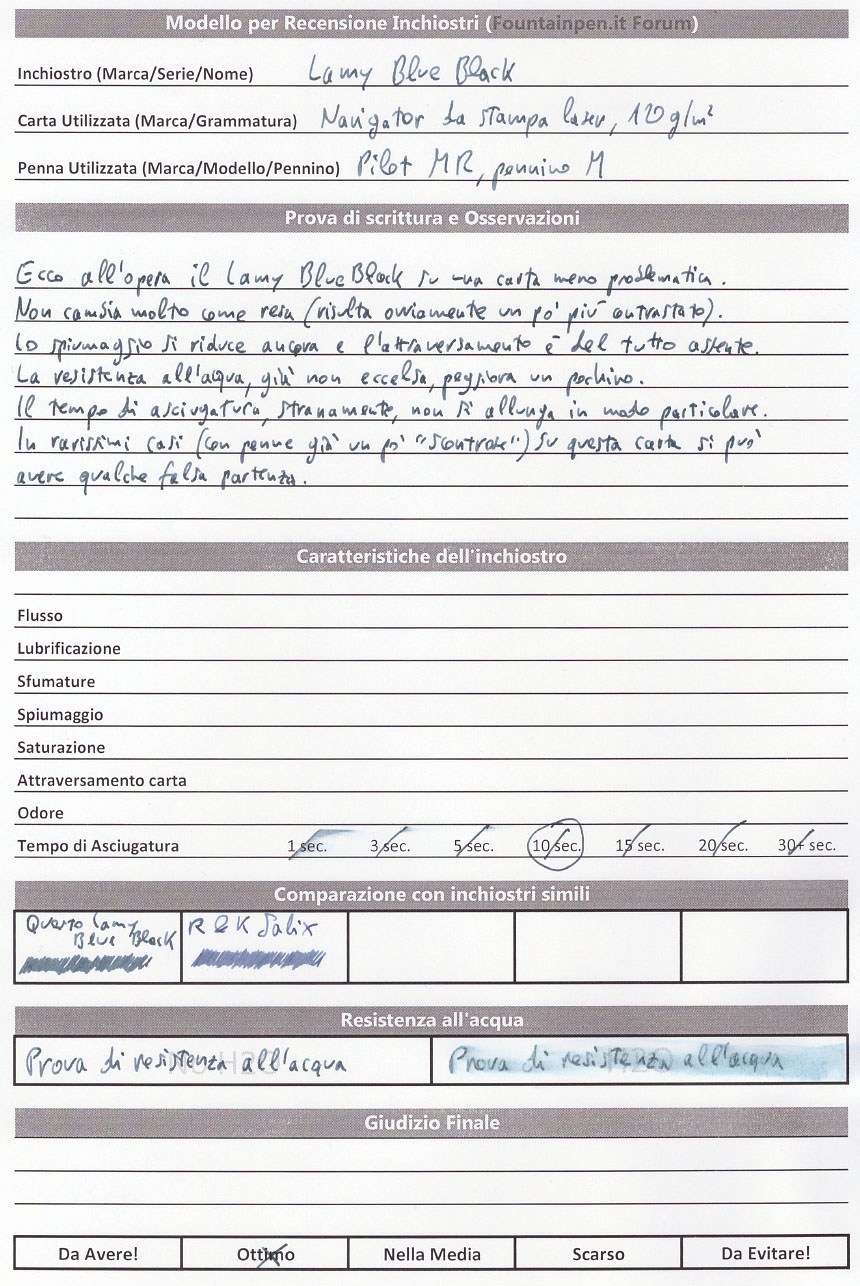 Modello per Recensione Inchiostri (Fountainpen.it Forum)
Inchiostro (Marca/Serie/Nome) Lamy Blue Black
Carta Utilizzata (Marca/Grammatura) Navigator da stampa laser, 120 g/m²
Penna Utilizzata (Marca/Modello/Pennino) Pilot MR, pennino M
Prova di scrittura e Osservazioni
Ecco all'opera il Lamy Blue Black su una carta meno problematica.
Non cambia molto come resa (risulta ovviamente un po' più contrastato).
Lo spiumaggio si riduce ancora e l'attraversamento è del tutto assente.
La resistenza all'acqua, già non eccelsa, peggiora un pochino.
Il tempo di asciugatura, stranamente, non si allunga in modo particolare.
In rarissimi casi (con penne già un po' "scontrose") su questa carta si può
avere qualche falsa partenza.
Caratteristiche dell'inchiostro
Flusso
Lubrificazione
Sfumature
Spiumaggio
Saturazione
Attraversamento carta
Odore
Tempo di Asciugatura 1 sec. 3 sec. 5 sec. 10 sec. 15 sec. 20 sec. 30+ sec.
Comparazione con inchiostri simili
Questo Lamy Blue Black
R&K Salix
Resistenza all'acqua
Prova di resistenza all'acqua Prova di resistenza all'acqua
Giudizio Finale
Da Avere! Ottimo Nella Media Scarso Da Evitare!